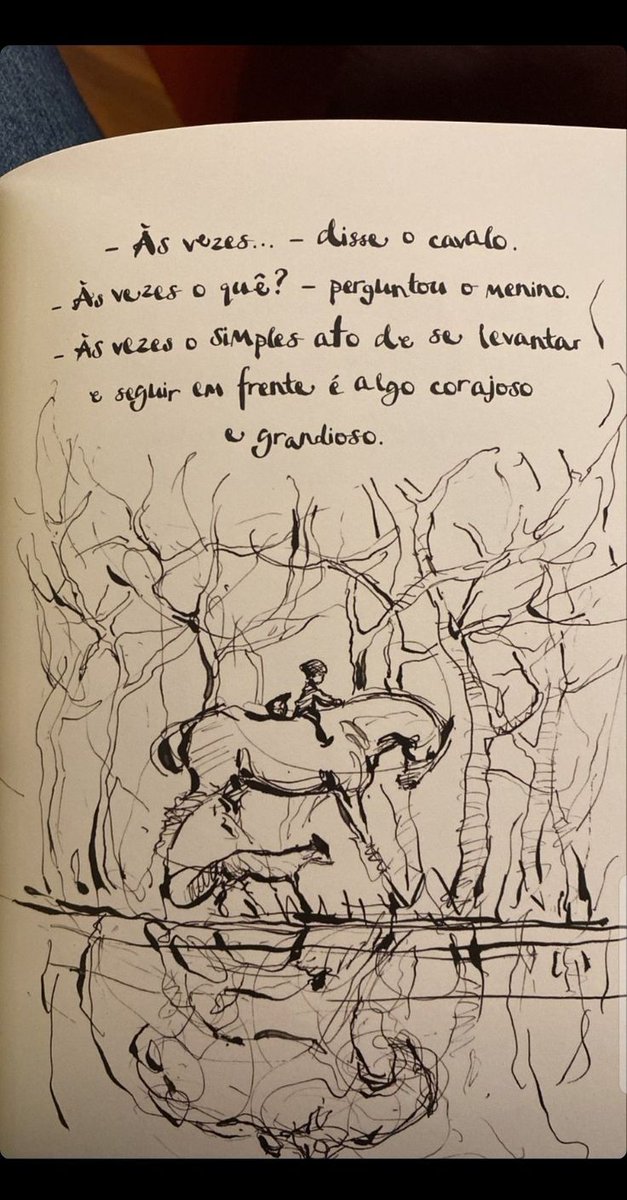 - Às vezes... - disse o cavalo.
- Às vezes o quê? - perguntou o menino.
- Às vezes o simples ato de se levantar
e seguir em frente é algo corajoso
e grandioso.